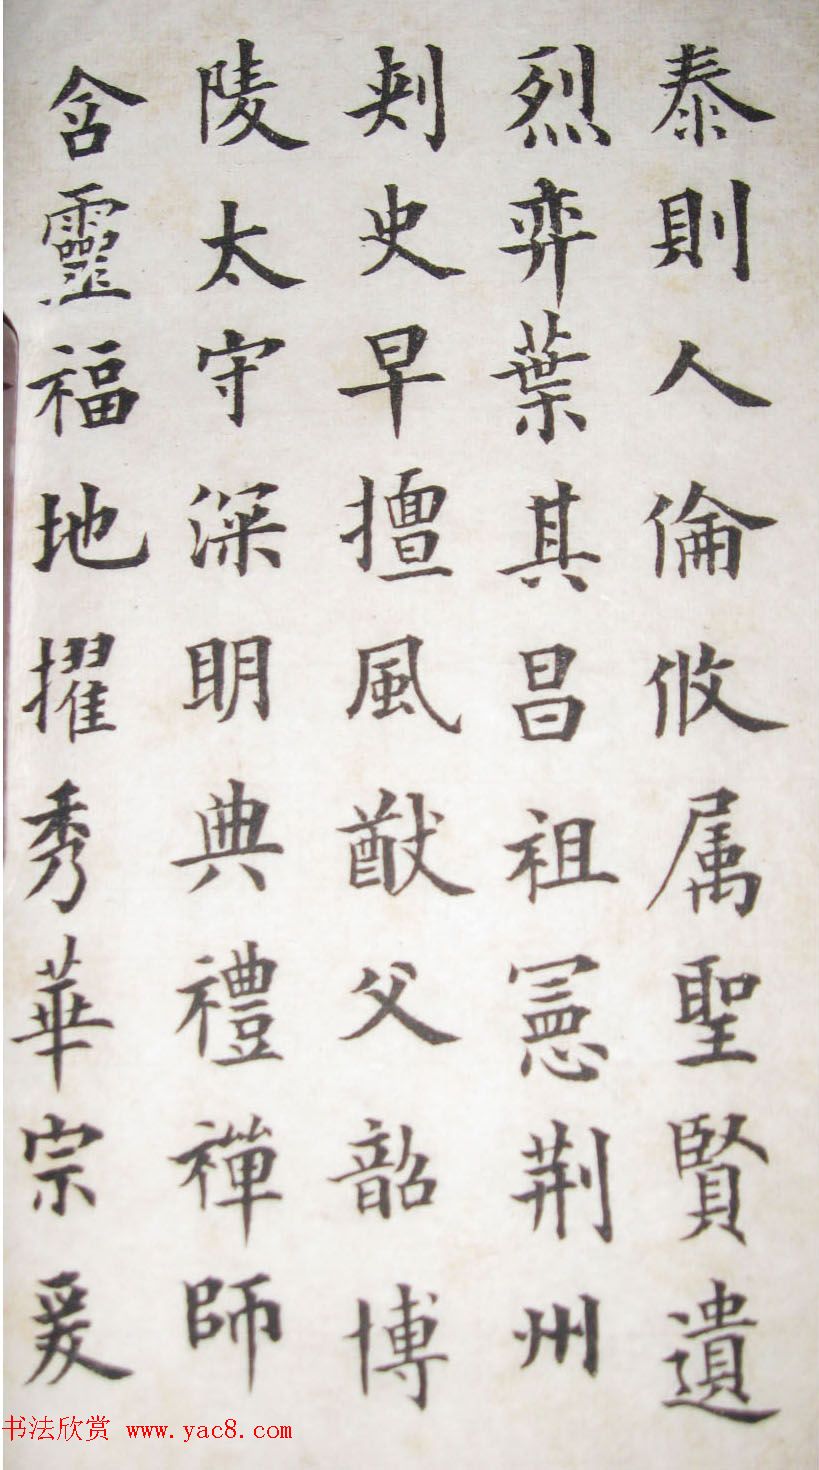 泰則人倫攸属聖賢遺
烈弈葉其昌祖憲荆州
刺史早擅風猷父韶博
陵太守深明典禮禪師
含靈福地擢秀華宗爰
书法欣赏 www.yac8.com